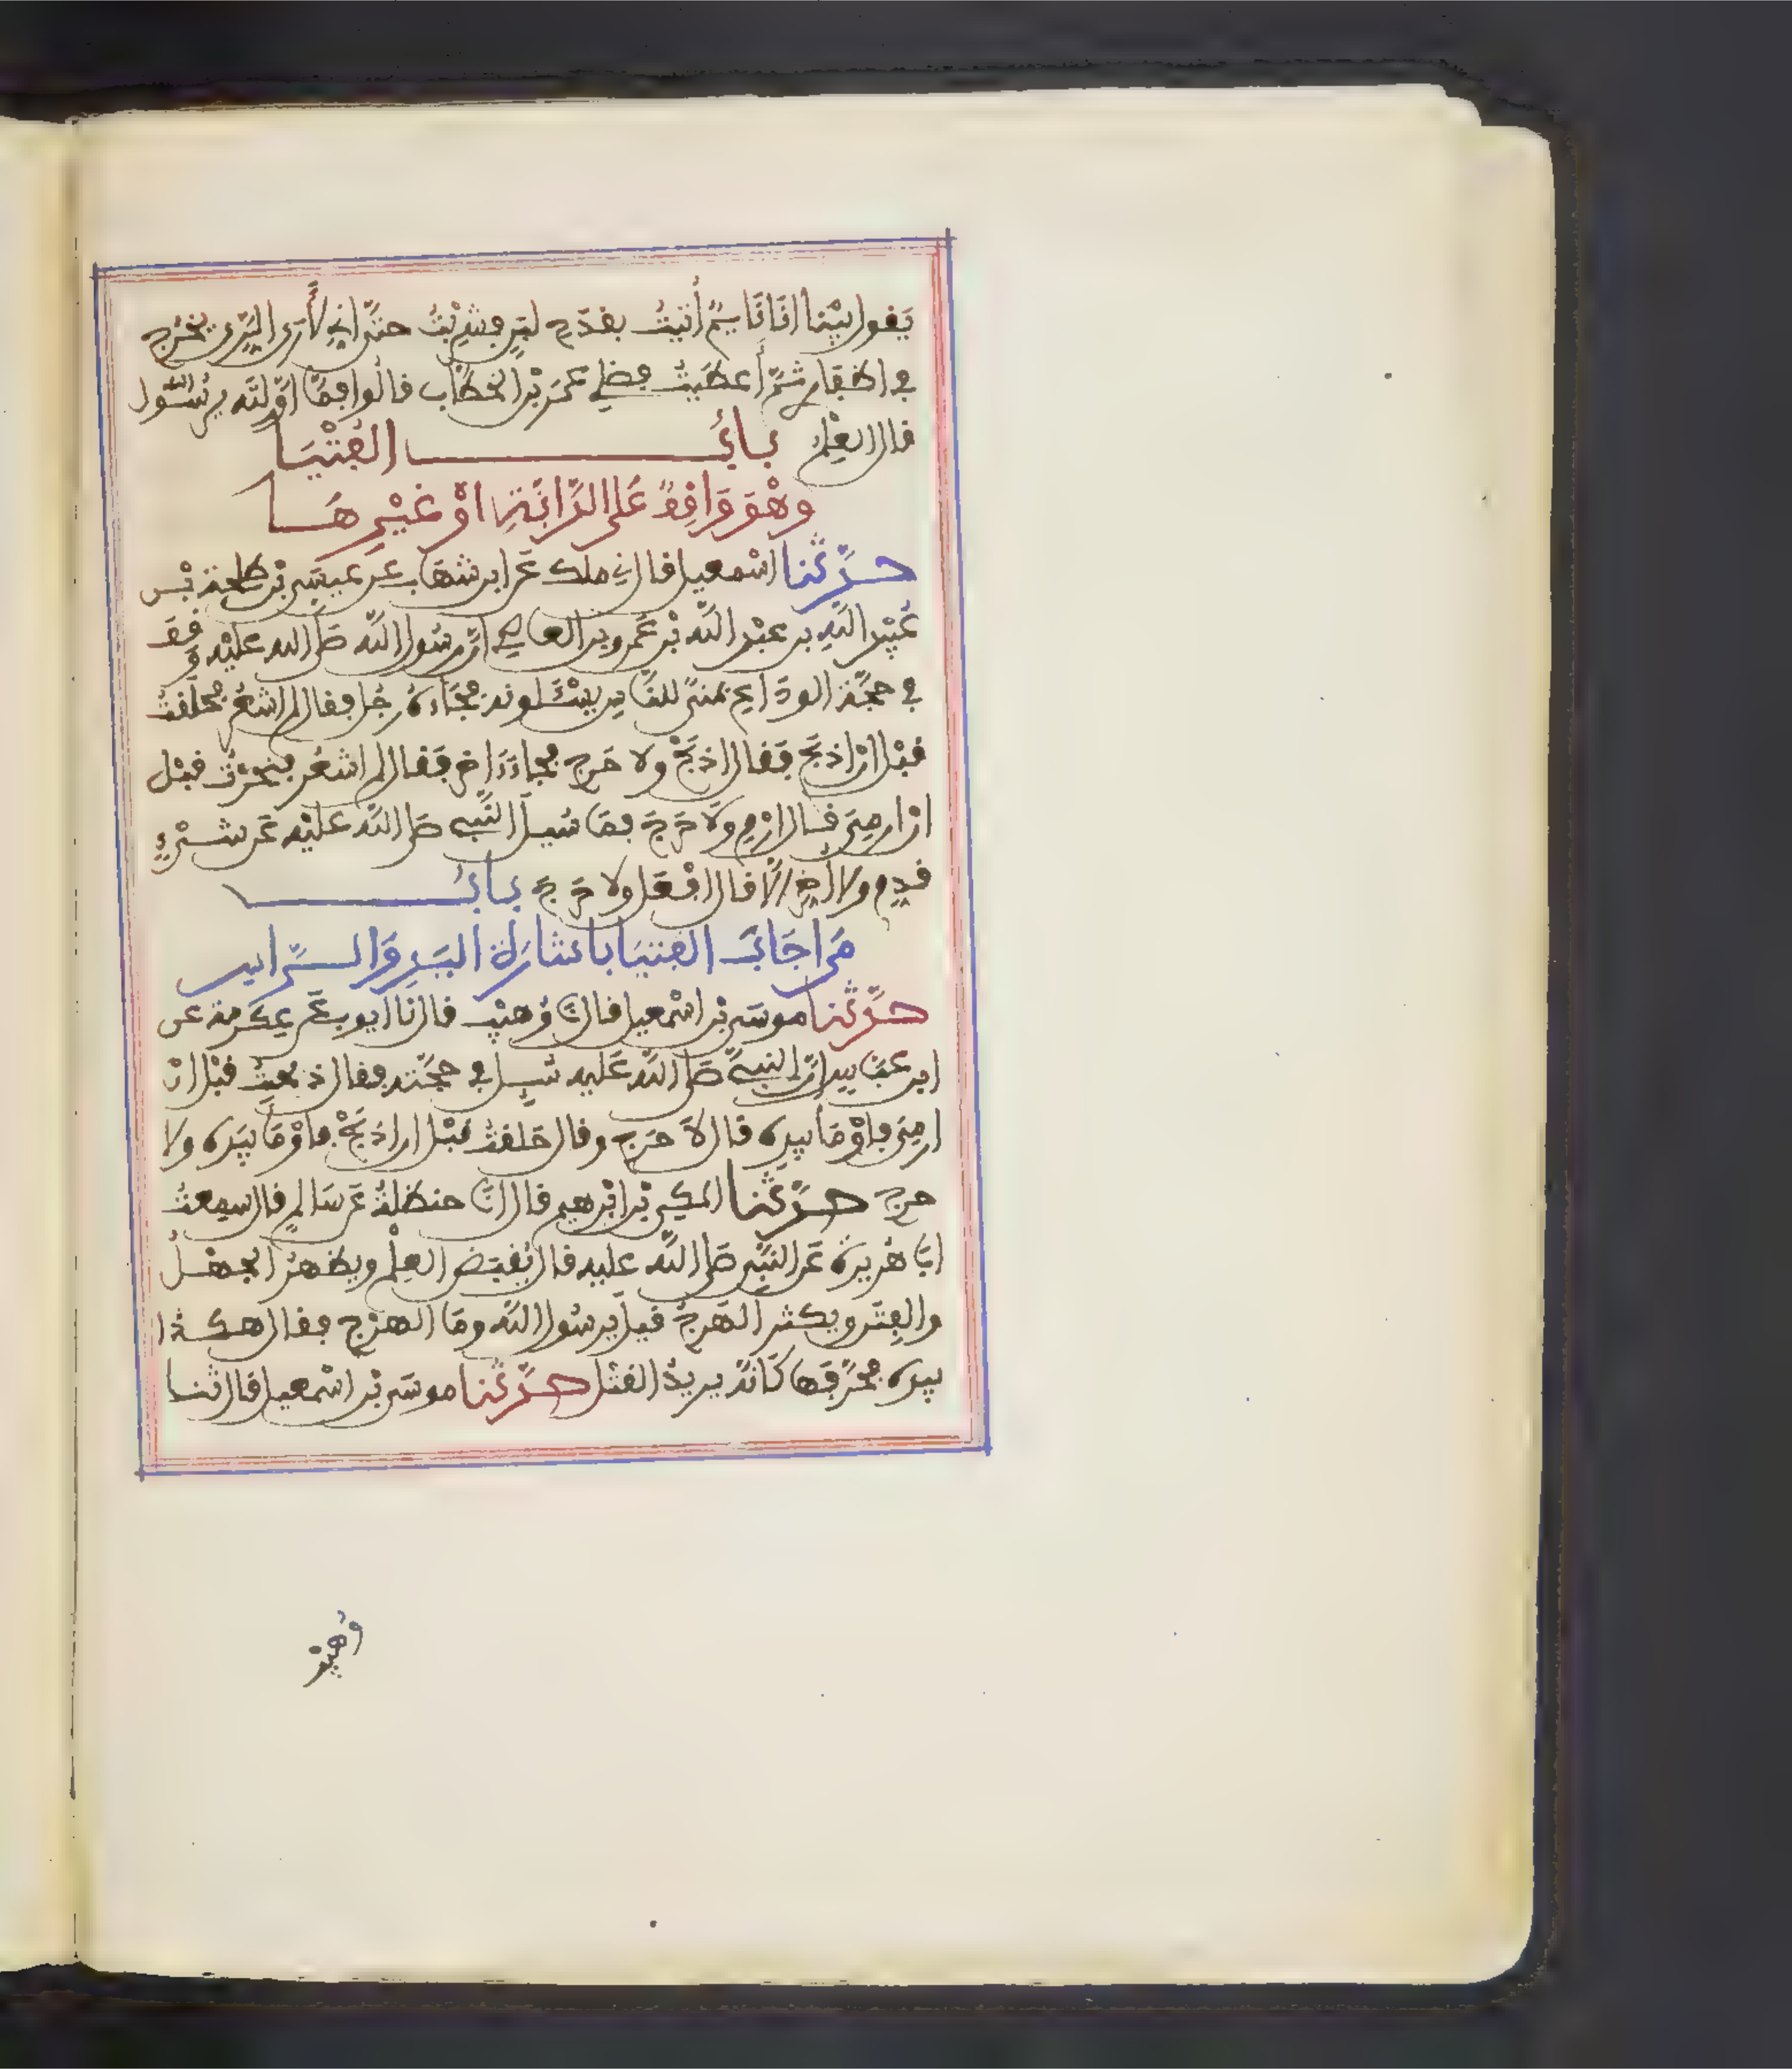 يَقول بيْنا انَا نَايمٌ أُتيتُ بقدَحِ لبَنٍ فشرِبْتُ حتَّى اني لأَرَى الرِّيَّ يَخرُج
في اظفاري ثمَّ أَعطَيتُ فضلي عُمَرَ بْنَ الخطَّاب قالُوا فمَا اوَّلتَه يرسُولَ اللَّه
قال العِلْمَ بابُ الفُتْيَا
وهْوَ وَاقِفٌ عَلى الدَّابَّةِ اوْ غيْرِهَا
حدَّثنا اسْمعيل قال ني ملك عَن ابن شهَاب عن عيسَى بْن طلحة بْن
عُبَيْد اللَّهِ عن عبْد اللَّه بْن عَمرو بن العاصي انَّ رسُول اللَّه صَلى الله عليْه وقفَ
في حجَّة الودَاع بمنىً للنَّاس يسْـَٔلونه فجَاءهُ رجُل فقال لم اشعُر فحلَقتُ
قبْل انْ اذبَحَ فقَال اذبَحْ ولا حَرج فجاءَ ءَاخر فقَال لم اشعُر فنحرْتُ قبْل
انْ ارمِيَ قال ارْمِ ولَا حَرَجَ فمَا سُيلَ النَّبي صَلى اللَّه عليْه عَن شيْءٍ
قدِّم ولا أخِّر إلَّا قال افْعَل ولا حَرَجَ بابُ
مَن اجَابَ الفتيَا باشارَة اليَدِ وَالرَّاس
حدَّثنا موسَى بْن اسْمعيل قال نَا وُهيْب قال نَا ايوب عَن عِكرمة عن
ابن عبَّاس انَّ النبيَّ صَلى اللَّه عَليه سُيِل في حجَّته فقال ذبحتُ قبْل انْ
ارمِيَ فاوْمَأ بيدِه قال لَا حَرَج وقال حَلقتُ قبْل ان اذبَحْ فاوْمَأ بيَده ولا
حرج حدَّثنا المكي بْن ابْرهيم قال انَا حنظلةُ عَن سَالمٍ قال سمعتُ
ابَا هُريرة عَن النَّبِي صَلى اللَّه عليه قال يُقبَضُ العِلْم ويظهرُ الجهْلُ
والفِتَن ويكثر الهَرجُ قيلَ يرسُول اللَّه ومَا الهرْج فقال هكذا
بيده فحرَّفهَا كَأنهُ يريدُ القتْل حدَّثنا موسَى بْن اسْمعيل قال ثنا
وُهيْبٌ